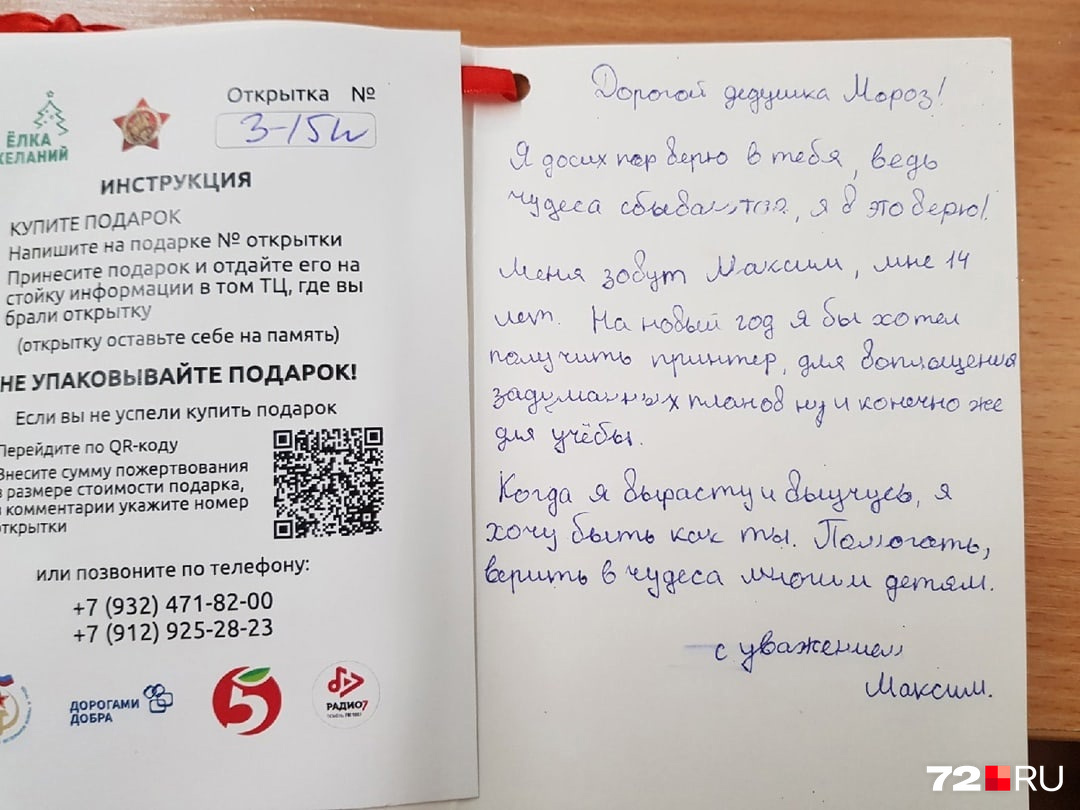 ЁЛКА
ЖЕЛАНИЙ
Открытка №
3-15н
ИНСТРУКЦИЯ
КУПИТЕ ПОДАРОК
Напишите на подарке № открытки
Принесите подарок и отдайте его на
стойку информации в том ТЦ, где вы
брали открытку
(открытку оставьте себе на память)
НЕ УПАКОВЫВАЙТЕ ПОДАРОК!
Если вы не успели купить подарок
Перейдите по QR-коду
Внесите сумму пожертвования
в размере стоимости подарка,
в комментарии укажите номер
открытки
или позвоните по телефону:
+7 (932) 471-82-00
+7 (912) 925-28-23
ДОРОГАМИ
ДОБРА
5
РАДИО7
Дорогой дедушка Мороз!
Я досих пор верю в тебя, ведь
чудеса сбываются, я в это верю!
Меня зовут Максим, мне 14
лет. На новый год я бы хотел
получить принтер, для воплощения
задуманных планов ну и конечно же
для учёбы.
Когда я вырасту и выучусь, я
хочу быть как ты. Помогать,
верить в чудеса многим детям.
с уважением
Максим.
72.RU